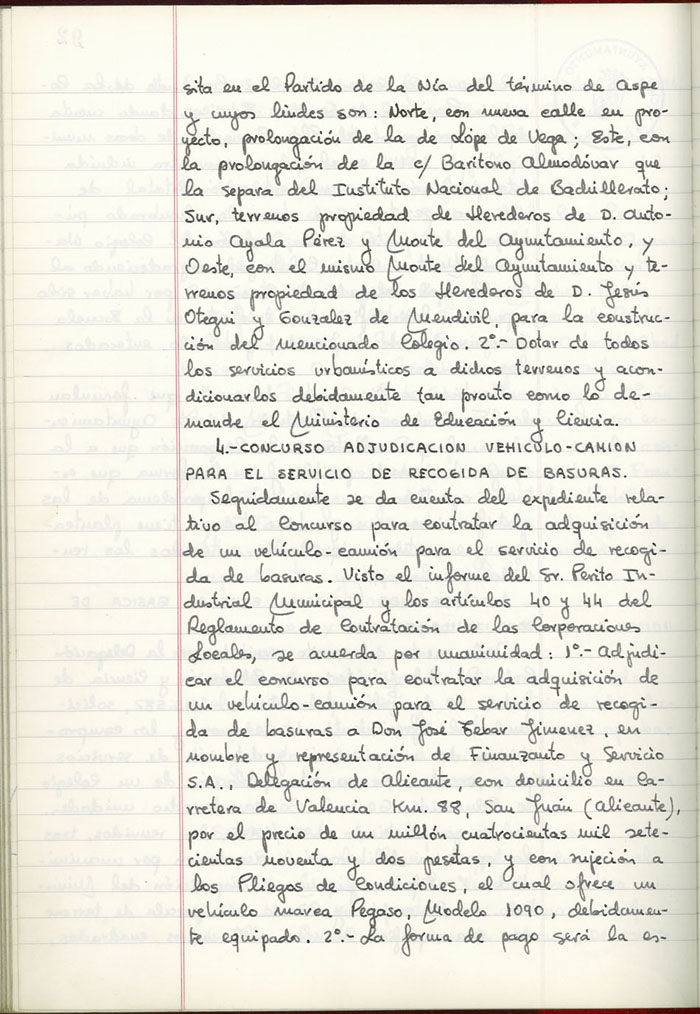 sita en el Partido de la Nía del término de Aspe
y cuyos lindes son: Norte, con nueva calle en pro-
yecto, prolongación de la de Lópe de Vega; Este, con
la prolongación de la c/ Barítono Almodóvar que
la separa del Instituto Nacional de Bachillerato;
Sur, terrenos propiedad de Herederos de D. Anto-
nio Ayala Pérez y Monte del Ayuntamiento, y
Oeste, con el mismo Monte del Ayuntamiento y te-
rrenos propiedad de los Herederos de D. Jesús
Otegui y Gonzalez de Mendivil, para la construc-
ción del mencionado Colegio. 2º.- Dotar de todos
los servicios urbanísticos a dichos terrenos y acon-
dicionarlos debidamente tan pronto como lo de-
mande el Ministerio de Educación y Ciencia.
4.-CONCURSO ADJUDICACION VEHICULO-CAMION
PARA EL SERVICIO DE RECOGIDA DE BASURAS.
Seguidamente se da cuenta del expediente rela-
tivo al Concurso para contratar la adquisición
de un vehículo-camión para el servicio de recogi-
da de basuras. Visto el informe del Sr. Perito In-
dustrial Municipal y los artículos 40 y 44 del
Reglamento de Contratación de las Corporaciones
Locales, se acuerda por unanimidad: 1º.- Adjudi-
car el concurso para contratar la adquisición de
un vehículo-camión para el servicio de recogi-
da de basuras a Don José Tebar Jimenez, en
nombre y representación de Finanzauto y Servicio
S.A., Delegación de Alicante, con domicilio en Ca-
rretera de Valencia Km. 88, San Juán (Alicante),
por el precio de un millón cuatrocientas mil sete-
cientas noventa y dos pesetas, y con sujeción a
los Pliegos de Condiciones, el cual ofrece un
vehículo marca Pegaso, Modelo 1090, debidamen-
te equipado. 2º.- La forma de pago será la es-